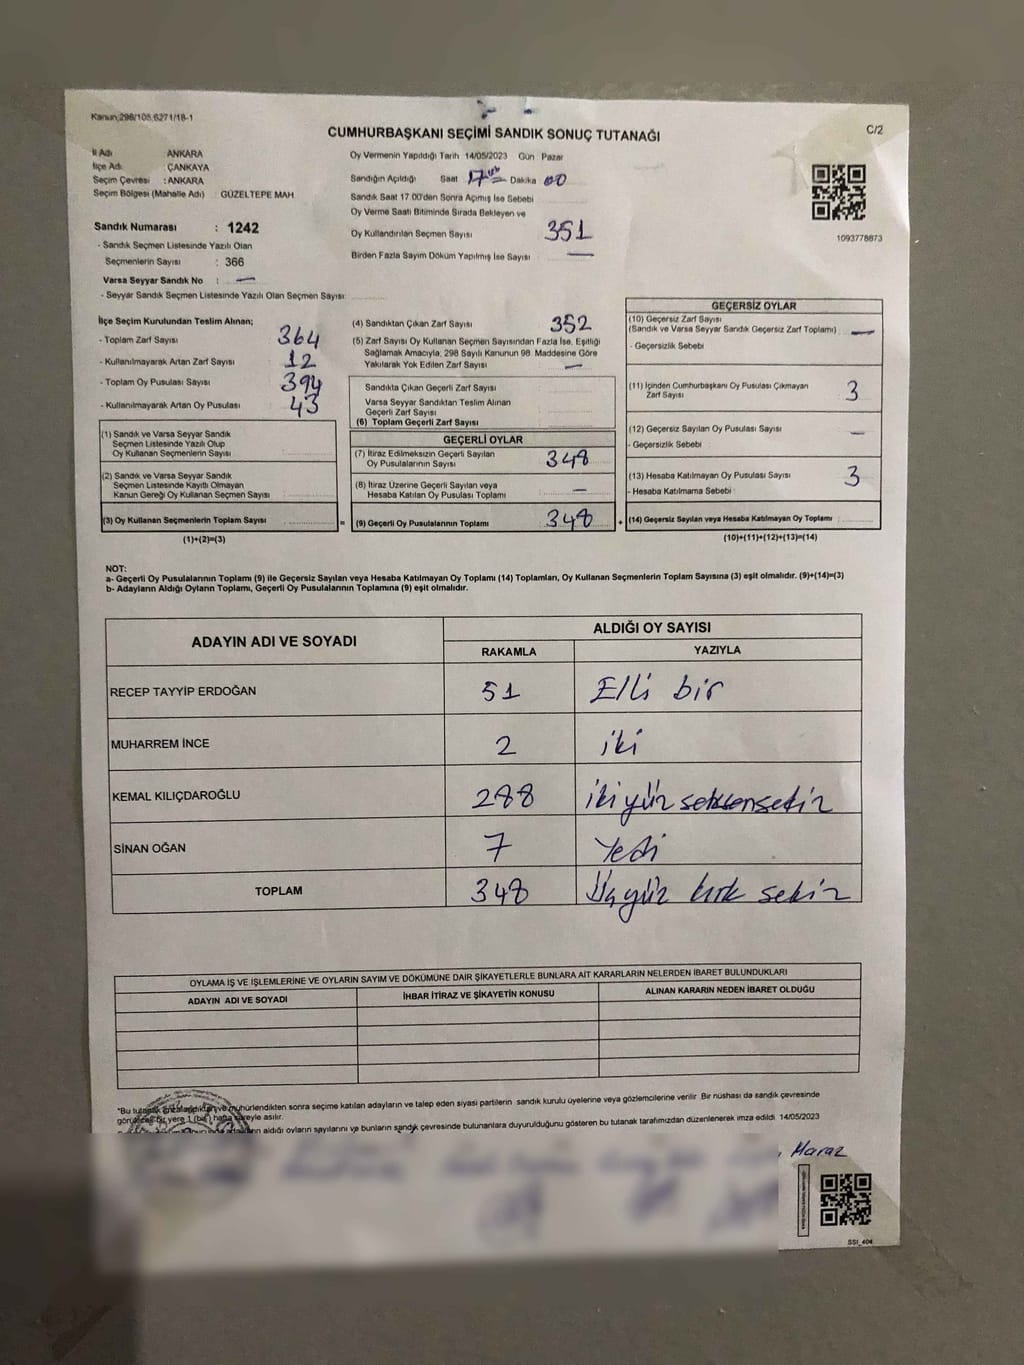 Kanun;298/105,6271/18-1
CUMHURBAŞKANI SEÇİMİ SANDIK SONUÇ TUTANAĞI
C/2
İl Adı : ANKARA
İlçe Adı : ÇANKAYA
Seçim Çevresi : ANKARA
Seçim Bölgesi (Mahalle Adı) : GÜZELTEPE MAH
Sandık Numarası : 1242
- Sandık Seçmen Listesinde Yazılı Olan
Seçmenlerin Sayısı : 366
Varsa Seyyar Sandık No : —
- Seyyar Sandık Seçmen Listesinde Yazılı Olan Seçmen Sayısı:
Oy Vermenin Yapıldığı Tarih 14/05/2023 Gün Pazar
Sandığın Açıldığı Saat 17 Dakika 00
Sandık Saat 17:00'den Sonra Açımış İse Sebebi
Oy Verme Saati Bitiminde Sırada Bekleyen ve
Oy Kullandırılan Seçmen Sayısı 351
Birden Fazla Sayım Döküm Yapılmış İse Sayısı —
1093778873
İlçe Seçim Kurulundan Teslim Alınan;
- Toplam Zarf Sayısı 364
- Kullanılmayarak Artan Zarf Sayısı 12
- Toplam Oy Pusulası Sayısı 394
- Kullanılmayarak Artan Oy Pusulası 43
(1) Sandık ve Varsa Seyyar Sandık
Seçmen Listesinde Yazılı Olup
Oy Kullanan Seçmenlerin Sayısı
(2) Sandık ve Varsa Seyyar Sandık
Seçmen Listesinde Kayıtlı Olmayan
Kanun Gereği Oy Kullanan Seçmen Sayısı
(3) Oy Kullanan Seçmenlerin Toplam Sayısı =
(1)+(2)=(3)
(4) Sandıktan Çıkan Zarf Sayısı 352
(5) Zarf Sayısı Oy Kullanan Seçmen Sayısından Fazla İse, Eşitliği
Sağlamak Amacıyla; 298 Sayılı Kanunun 98. Maddesine Göre
Yakılarak Yok Edilen Zarf Sayısı —
Sandıkta Çıkan Geçerli Zarf Sayısı
Varsa Seyyar Sandıktan Teslim Alınan
Geçerli Zarf Sayısı
(6) Toplam Geçerli Zarf Sayısı
GEÇERLİ OYLAR
(7) İtiraz Edilmeksizin Geçerli Sayılan
Oy Pusulalarının Sayısı 348
(8) İtiraz Üzerine Geçerli Sayılan veya
Hesaba Katılan Oy Pusulası Toplamı —
(9) Geçerli Oy Pusulalarının Toplamı 348 +
GEÇERSİZ OYLAR
(10) Geçersiz Zarf Sayısı
(Sandık ve Varsa Seyyar Sandık Geçersiz Zarf Toplamı) —
- Geçersizlik Sebebi
(11) İçinden Cumhurbaşkanı Oy Pusulası Çıkmayan
Zarf Sayısı 3
(12) Geçersiz Sayılan Oy Pusulası Sayısı —
- Geçersizlik Sebebi
(13) Hesaba Katılmayan Oy Pusulası Sayısı 3
- Hesaba Katılmama Sebebi
(14) Geçersiz Sayılan veya Hesaba Katılmayan Oy Toplamı
(10)+(11)+(12)+(13)=(14)
NOT:
a- Geçerli Oy Pusulalarının Toplamı (9) ile Geçersiz Sayılan veya Hesaba Katılmayan Oy Toplamı (14) Toplamları, Oy Kullanan Seçmenlerin Toplam Sayısına (3) eşit olmalıdır. (9)+(14)=(3)
b- Adayların Aldığı Oyların Toplamı, Geçerli Oy Pusulalarının Toplamına (9) eşit olmalıdır.
ADAYIN ADI VE SOYADI
ALDIĞI OY SAYISI
RAKAMLA YAZIYLA
RECEP TAYYİP ERDOĞAN 51 Elli bir
MUHARREM İNCE 2 iki
KEMAL KILIÇDAROĞLU 288 iki yüz seksensekiz
SİNAN OĞAN 7 Yedi
TOPLAM 348 Üçyüz kırk sekiz
OYLAMA İŞ VE İŞLEMLERİNE VE OYLARIN SAYIM VE DÖKÜMÜNE DAİR ŞİKAYETLERLE BUNLARA AİT KARARLARIN NELERDEN İBARET BULUNDUKLARI
ADAYIN ADI VE SOYADI İHBAR İTİRAZ VE ŞİKAYETİN KONUSU ALINAN KARARIN NEDEN İBARET OLDUĞU
*Bu tutanak ve mühürlendikten sonra seçime katılan adayların ve talep eden siyasi partilerin sandık kurulu üyelerine veya gözlemcilerine verilir. Bir nüshası da sandık çevresinde
bir yere 1 (bir) hafta süreyle asılır.
aldığı oyların sayılarını ve bunların sandık çevresinde bulunanlara duyurulduğunu gösteren bu tutanak tarafımızdan düzenlenerek imza edildi. 14/05/2023
Maraz
SSI_404